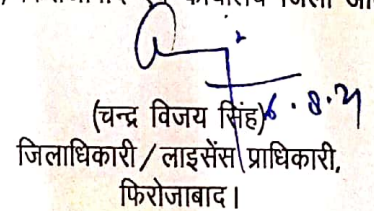 कार्यालय जिला
(चन्द्र विजय सिंह) 6.8.21
जिलाधिकारी/लाइसेंस प्राधिकारी,
फिरोजाबाद।